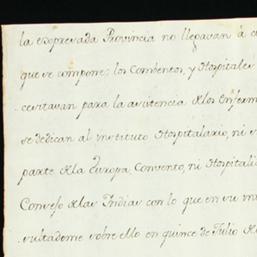 la expresada Provincia no llegavan á c
que se compone; los Combentos, y Hospitales
cesitavan para la asistencia de los Enferm
se dedican al instituto Hospitalario, ni e
parte de la Europa, Convento, ni Hospitali
Consejo de las Indias con lo que en su vi
sultadome sobre ello en quince de Julio de